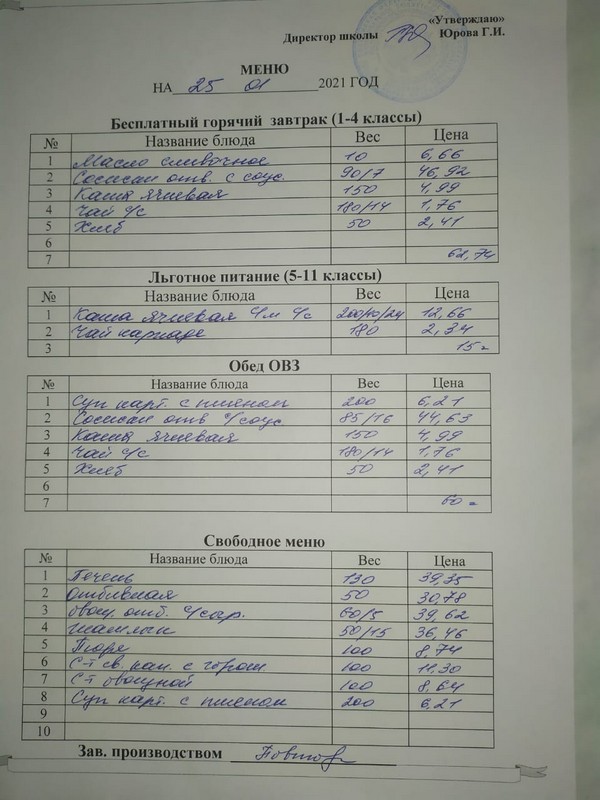 «Утверждаю»
Директор школы Юрова Г.И.
МЕНЮ
НА 25 01 2021 ГОД
Бесплатный горячий завтрак (1-4 классы)
№ Название блюда Вес Цена
1 Масло сливочное 10 6,66
2 Сосиски отв. с соус. 90/7 46,92
3 Каша ячневая 150 4,99
4 Чай с/с 180/14 1,76
5 Хлеб 50 2,41
6
7 62,74
Льготное питание (5-11 классы)
№ Название блюда Вес Цена
1 Каша ячневая с/м с/с 200/10/24 12,66
2 Чай каркаде 180 2,34
3 15=
Обед ОВЗ
№ Название блюда Вес Цена
1 Суп карт. с пшеном 200 6,21
2 Сосиски отв с/соус. 85/16 44,63
3 Каша ячневая 150 4,99
4 Чай с/с 180/14 1,76
5 Хлеб 50 2,41
6
7 60=
Свободное меню
№ Название блюда Вес Цена
1 Печень 130 39,35
2 Отбивная 50 30,78
3 отб. с/сыр. 60/5 39,62
4 Шашлык 50/15 36,46
5 Пюре 100 8,74
6 С-т св. кап. с горош 100 11,30
7 С-т овощной 100 8,64
8 Суп карт. с пшеном 200 6,21
9
10
Зав. производством